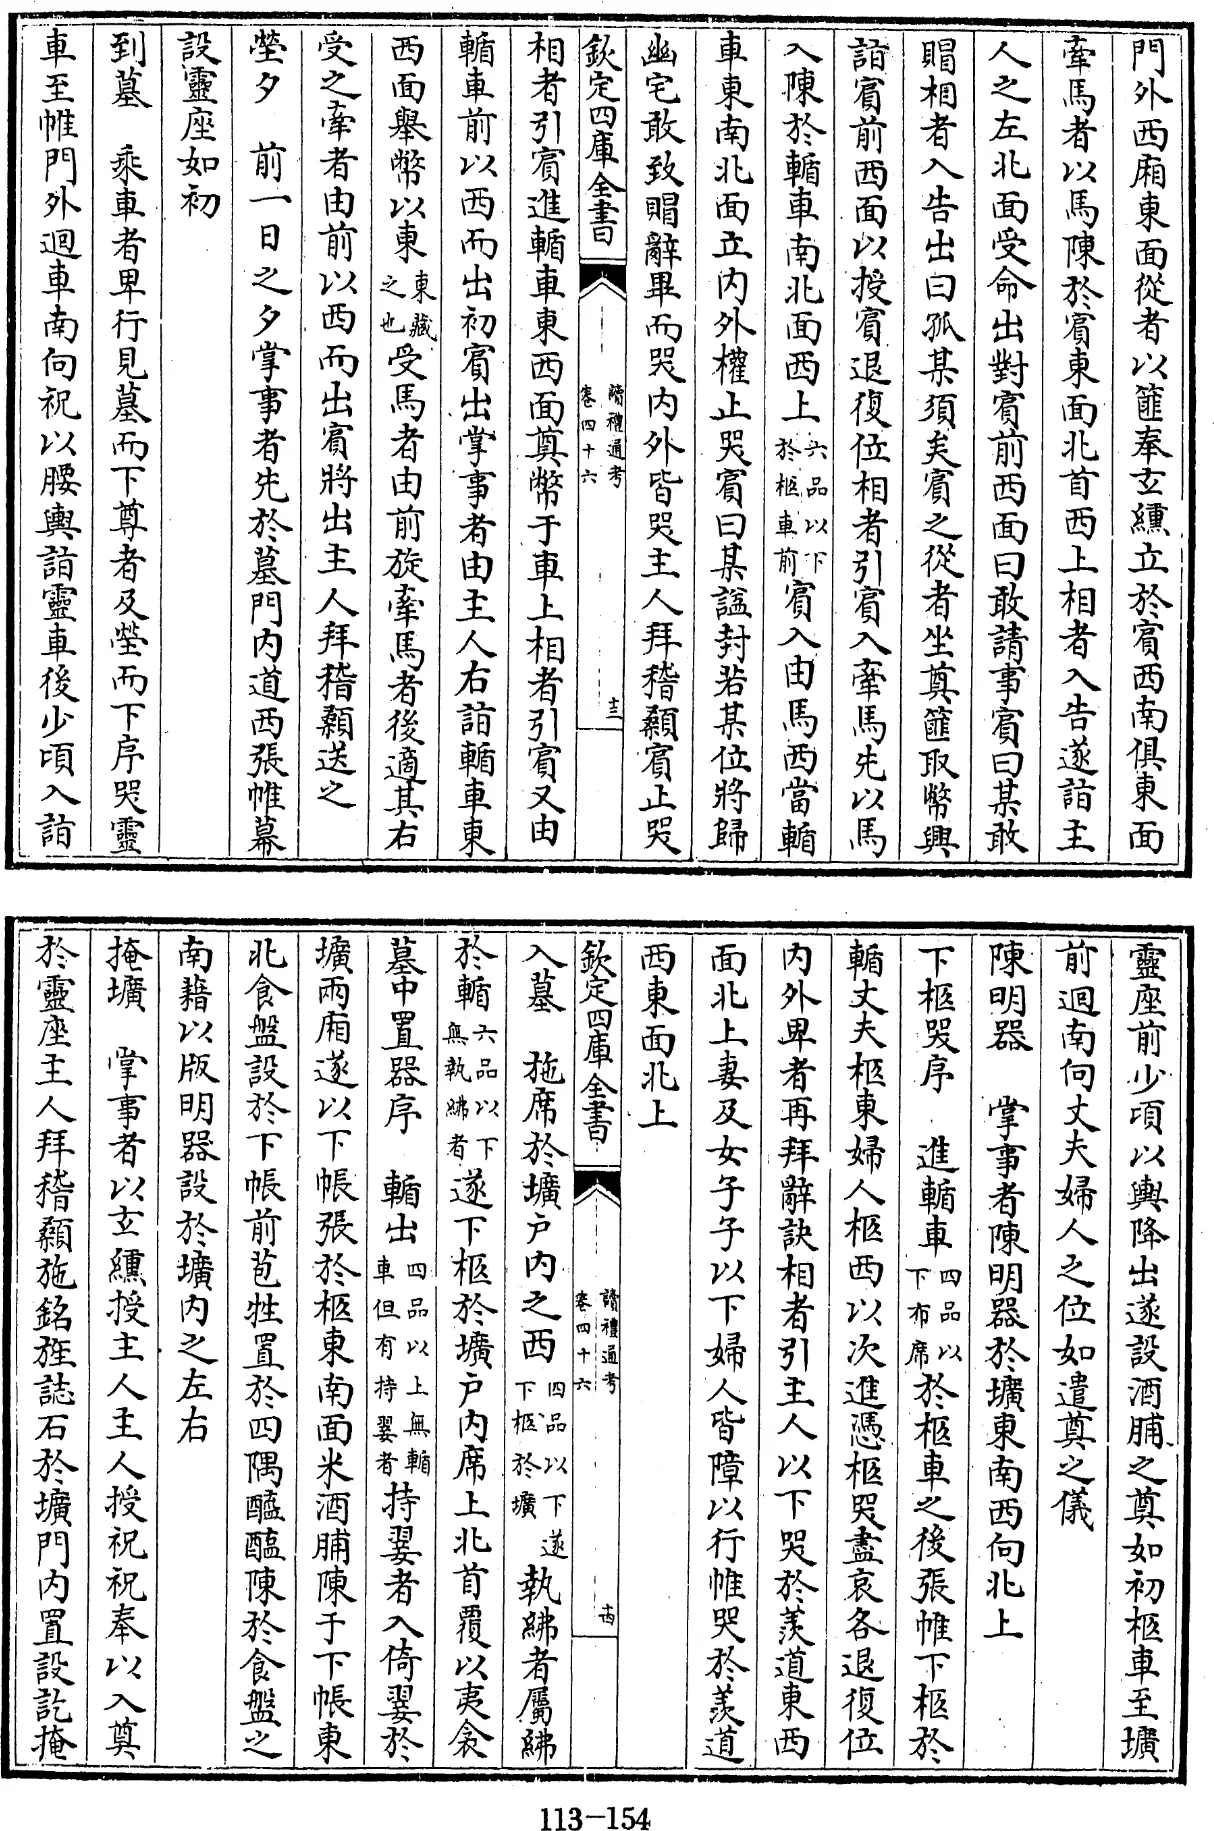 門外西廂東面從者以篚奉玄纁立於賓西南俱東面
牽馬者以馬陳於賓東面北首西上相者入告遂詣主
人之左北面受命出對賓前西面曰敢請事賓曰某敢
賵相者入告出曰孤某須矣賓之從者坐奠篚取幣興
詣賓前西面以授賓退復位相者引賓入牽馬先以馬
入陳於輴車南北面西上六品以下於柩車前賓入由馬西當輴
車東南北面立内外權止哭賓曰某諡封若某位將歸
幽宅敢致賵辭畢而哭内外皆哭主人拜稽顙賓止哭
欽定四庫全書 讀禮通考 卷四十六 十三
相者引賓進輴車東西面奠幣于車上相者引賓又由
輴車前以西而出初賓出掌事者由主人右詣輴車東
西面舉幣以東東藏之也受馬者由前旋牽馬者後適其右
受之牽者由前以西而出賓將出主人拜稽顙送之
塋夕 前一日之夕掌事者先於墓門内道西張帷幕
設靈座如初
到墓 乘車者卑行見墓而下尊者及塋而下序哭靈
車至帷門外迴車南向祝以腰輿詣靈車後少頃入詣
靈座前少頃以輿降出遂設酒脯之奠如初柩車至壙
前迴南向丈夫婦人之位如遣奠之儀
陳明器 掌事者陳明器於壙東南西向北上
下柩哭序 進輴車四品以下布席於柩車之後張帷下柩於
輴丈夫柩東婦人柩西以次進憑柩哭盡哀各退復位
内外卑者再拜辭訣相者引主人以下哭於羨道東西
面北上妻及女子子以下婦人皆障以行帷哭於羨道
西東面北上
欽定四庫全書 讀禮通考 卷四十六 十四
入墓 施席於壙户内之西四品以下遂下柩於壙執紼者屬紼
於輴六品以下無執紼者遂下柩於壙户内席上北首覆以夷衾
墓中置器序 輴出四品以上無輴車但有持翣者持翣者入倚翣於
壙兩廂遂以下帳張於柩東南面米酒脯陳于下帳東
北食盤設於下帳前苞牲置於四隅醯醢陳於食盤之
南藉以版明器設於壙内之左右
掩壙 掌事者以玄纁授主人主人授祝祝奉以入奠
於靈座主人拜稽顙施銘旌誌石於壙門内置設訖掩
113-154